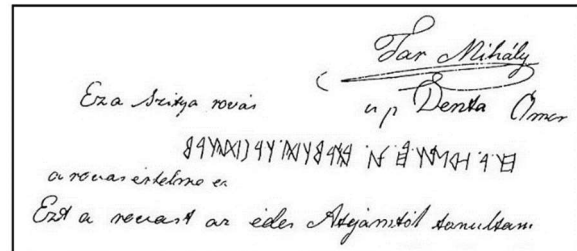 Tar Mihály
Ez a Szitya rovás
u p Denta Ómor
a rovas értelme ez
Ezt a rovast az édes Atyámtól tanultam